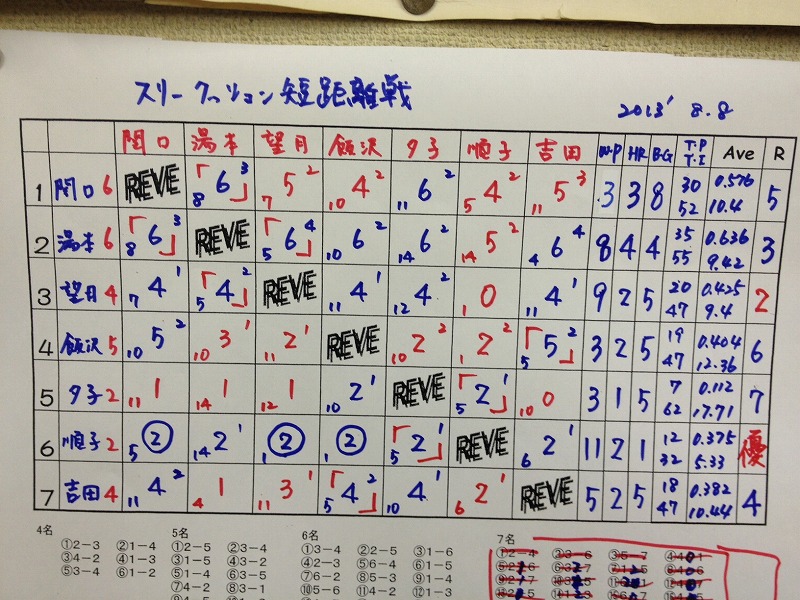 スリークッション短距離戦
2013' 8.8
関口 湯本 望月 飯沢 夕子 順子 吉田 W.P HR BG T.P T.I Ave R
1 関口 6 REVE 「8 6 3」 7 5 2 10 4 2 11 6 2 5 4 2 11 5 3 3 3 8 30 52 0.576 10.4 5
2 湯本 6 「8 6 3」 REVE 「5 6 4」 10 6 2 14 6 2 14 5 2 4 6 4 8 4 4 35 55 0.636 9.42 3
3 望月 4 7 4 1 「5 4 2」 REVE 11 4 1 12 4 2 1 0 11 4 1 9 2 5 20 47 0.425 9.4 2
4 飯沢 5 10 5 2 10 3 1 11 2 1 REVE 10 2 2 1 2 2 「5 2」 5 3 2 5 19 47 0.404 12.36 6
5 夕子 2 11 1 14 1 12 1 10 2 1 REVE 「5 2 1」 10 0 3 1 5 7 62 0.112 17.71 7
6 順子 2 5 ② 14 2 1 1 ② 1 ② 「5 2 1」 REVE 6 2 1 11 2 1 12 32 0.375 5.33 優
7 吉田 4 11 4 2 4 1 11 3 1 「5 4 2」 10 4 1 6 2 1 REVE 5 2 5 18 47 0.382 10.44 4
4名 5名 6名 7名
①2－3 ②1－4 ①2－5 ②3－4 ①3－4 ②2－5 ③1－6
③4－2 ④1－3 ③1－5 ④2－4 ④2－3 ⑤6－4 ⑥1－5
⑤3－4 ⑥1－2 ⑤1－4 ⑥3－5 ⑦6－2 ⑧5－3 ⑨1－4
⑦4－2 ⑧3－1 ⑩5－6 ⑪4－2 ⑫1－3